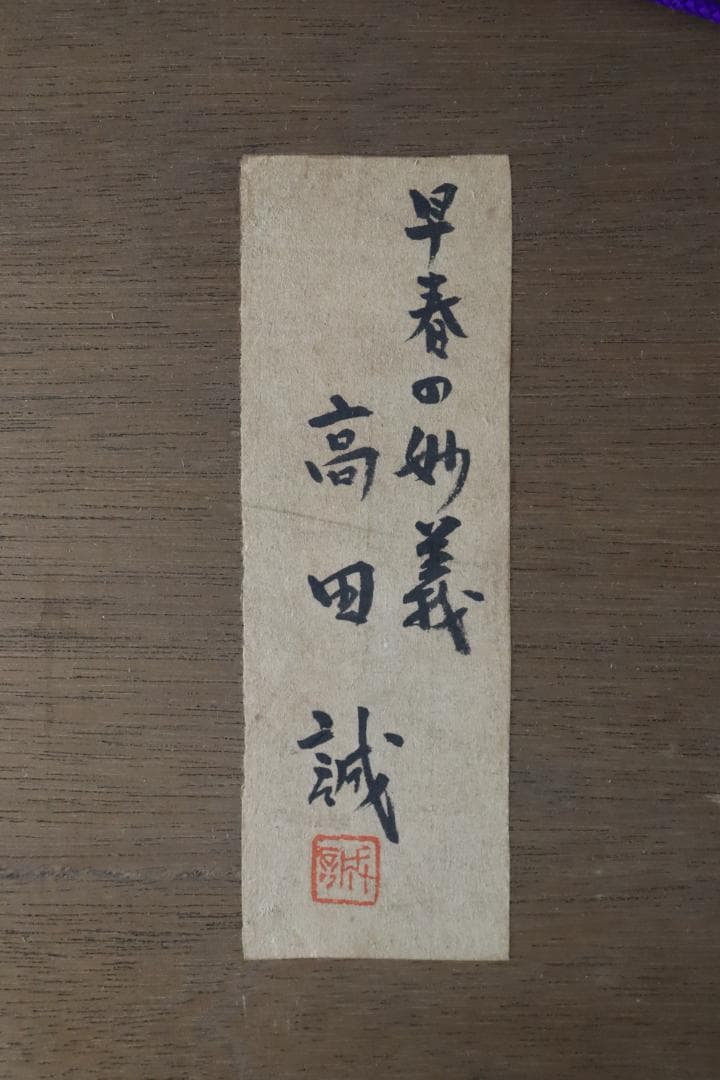 早春の妙義
高田誠
誠